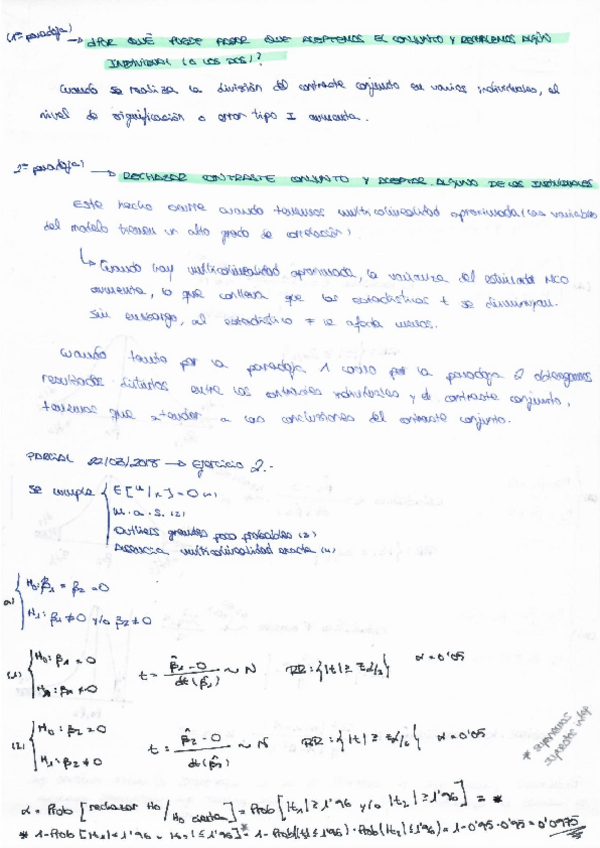 (1ª paradoja) → ¿POR QUÉ PUEDE PASAR QUE ACEPTEMOS EL CONJUNTO Y RECHACEMOS ALGÚN
INDIVIDUAL (O LOS DOS)?
Cuando se realiza la división del contraste conjunto en varios individuales, el
nivel de significación o error tipo I aumenta.
2ª paradoja) → RECHAZAR CONTRASTE CONJUNTO Y ACEPTAR ALGUNO DE LOS INDIVIDUALES
Este hecho ocurre cuando tenemos multicolinealidad aproximada (las variables
del modelo tienen un alto grado de correlación)
↳ Cuando hay multicolinealidad aproximada, la varianza del estimador MCO
aumenta, lo que conlleva que los estadísticos t se disminuyan.
Sin embargo, al estadístico F le afecta menos.
Cuando tanto por la paradoja 1 como por la paradoja 2 obtengamos
resultados distintos entre los contrastes individuales y el contraste conjunto,
tenemos que atender a las conclusiones del contraste conjunto.
PARCIAL 22/03/2018 → Ejercicio 2.-
Se cumple { E[u/x] = 0 (1)
m.a.s. (2)
Outliers grandes poco probables (3)
Ausencia multicolinealidad exacta (4)
a) { H₀: β₁ = β₂ = 0
H₁: β₁ ≠ 0 y/o β₂ ≠ 0
(1) { H₀: β₁ = 0
H₁: β₁ ≠ 0 t = β̂₁ - 0 / dt(β̂₁) ~ N RR: {|t| ≥ Zα/2} α = 0'05
(2) { H₀: β₂ = 0
H₁: β₂ ≠ 0 t = β̂₂ - 0 / dt(β̂₂) ~ N RR: {|t| ≥ Zα/2} α = 0'05
α = Prob [rechazar H₀ / H₀ cierta] = Prob [|t₁| ≥ 1'96 y/o |t₂| ≥ 1'96] = *
* 1-Prob [|t₁| ≤ 1'96 , |t₂| ≤ 1'96] * = 1 - Prob(|t₁| ≤ 1'96) · Prob(|t₂| ≤ 1'96) = 1 - 0'95 · 0'95 = 0'0975